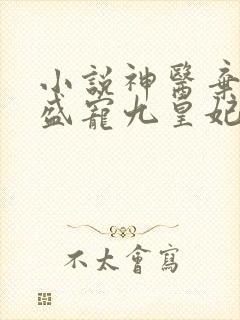 小說神醫棄
盛寵九皇妃
不太會寫